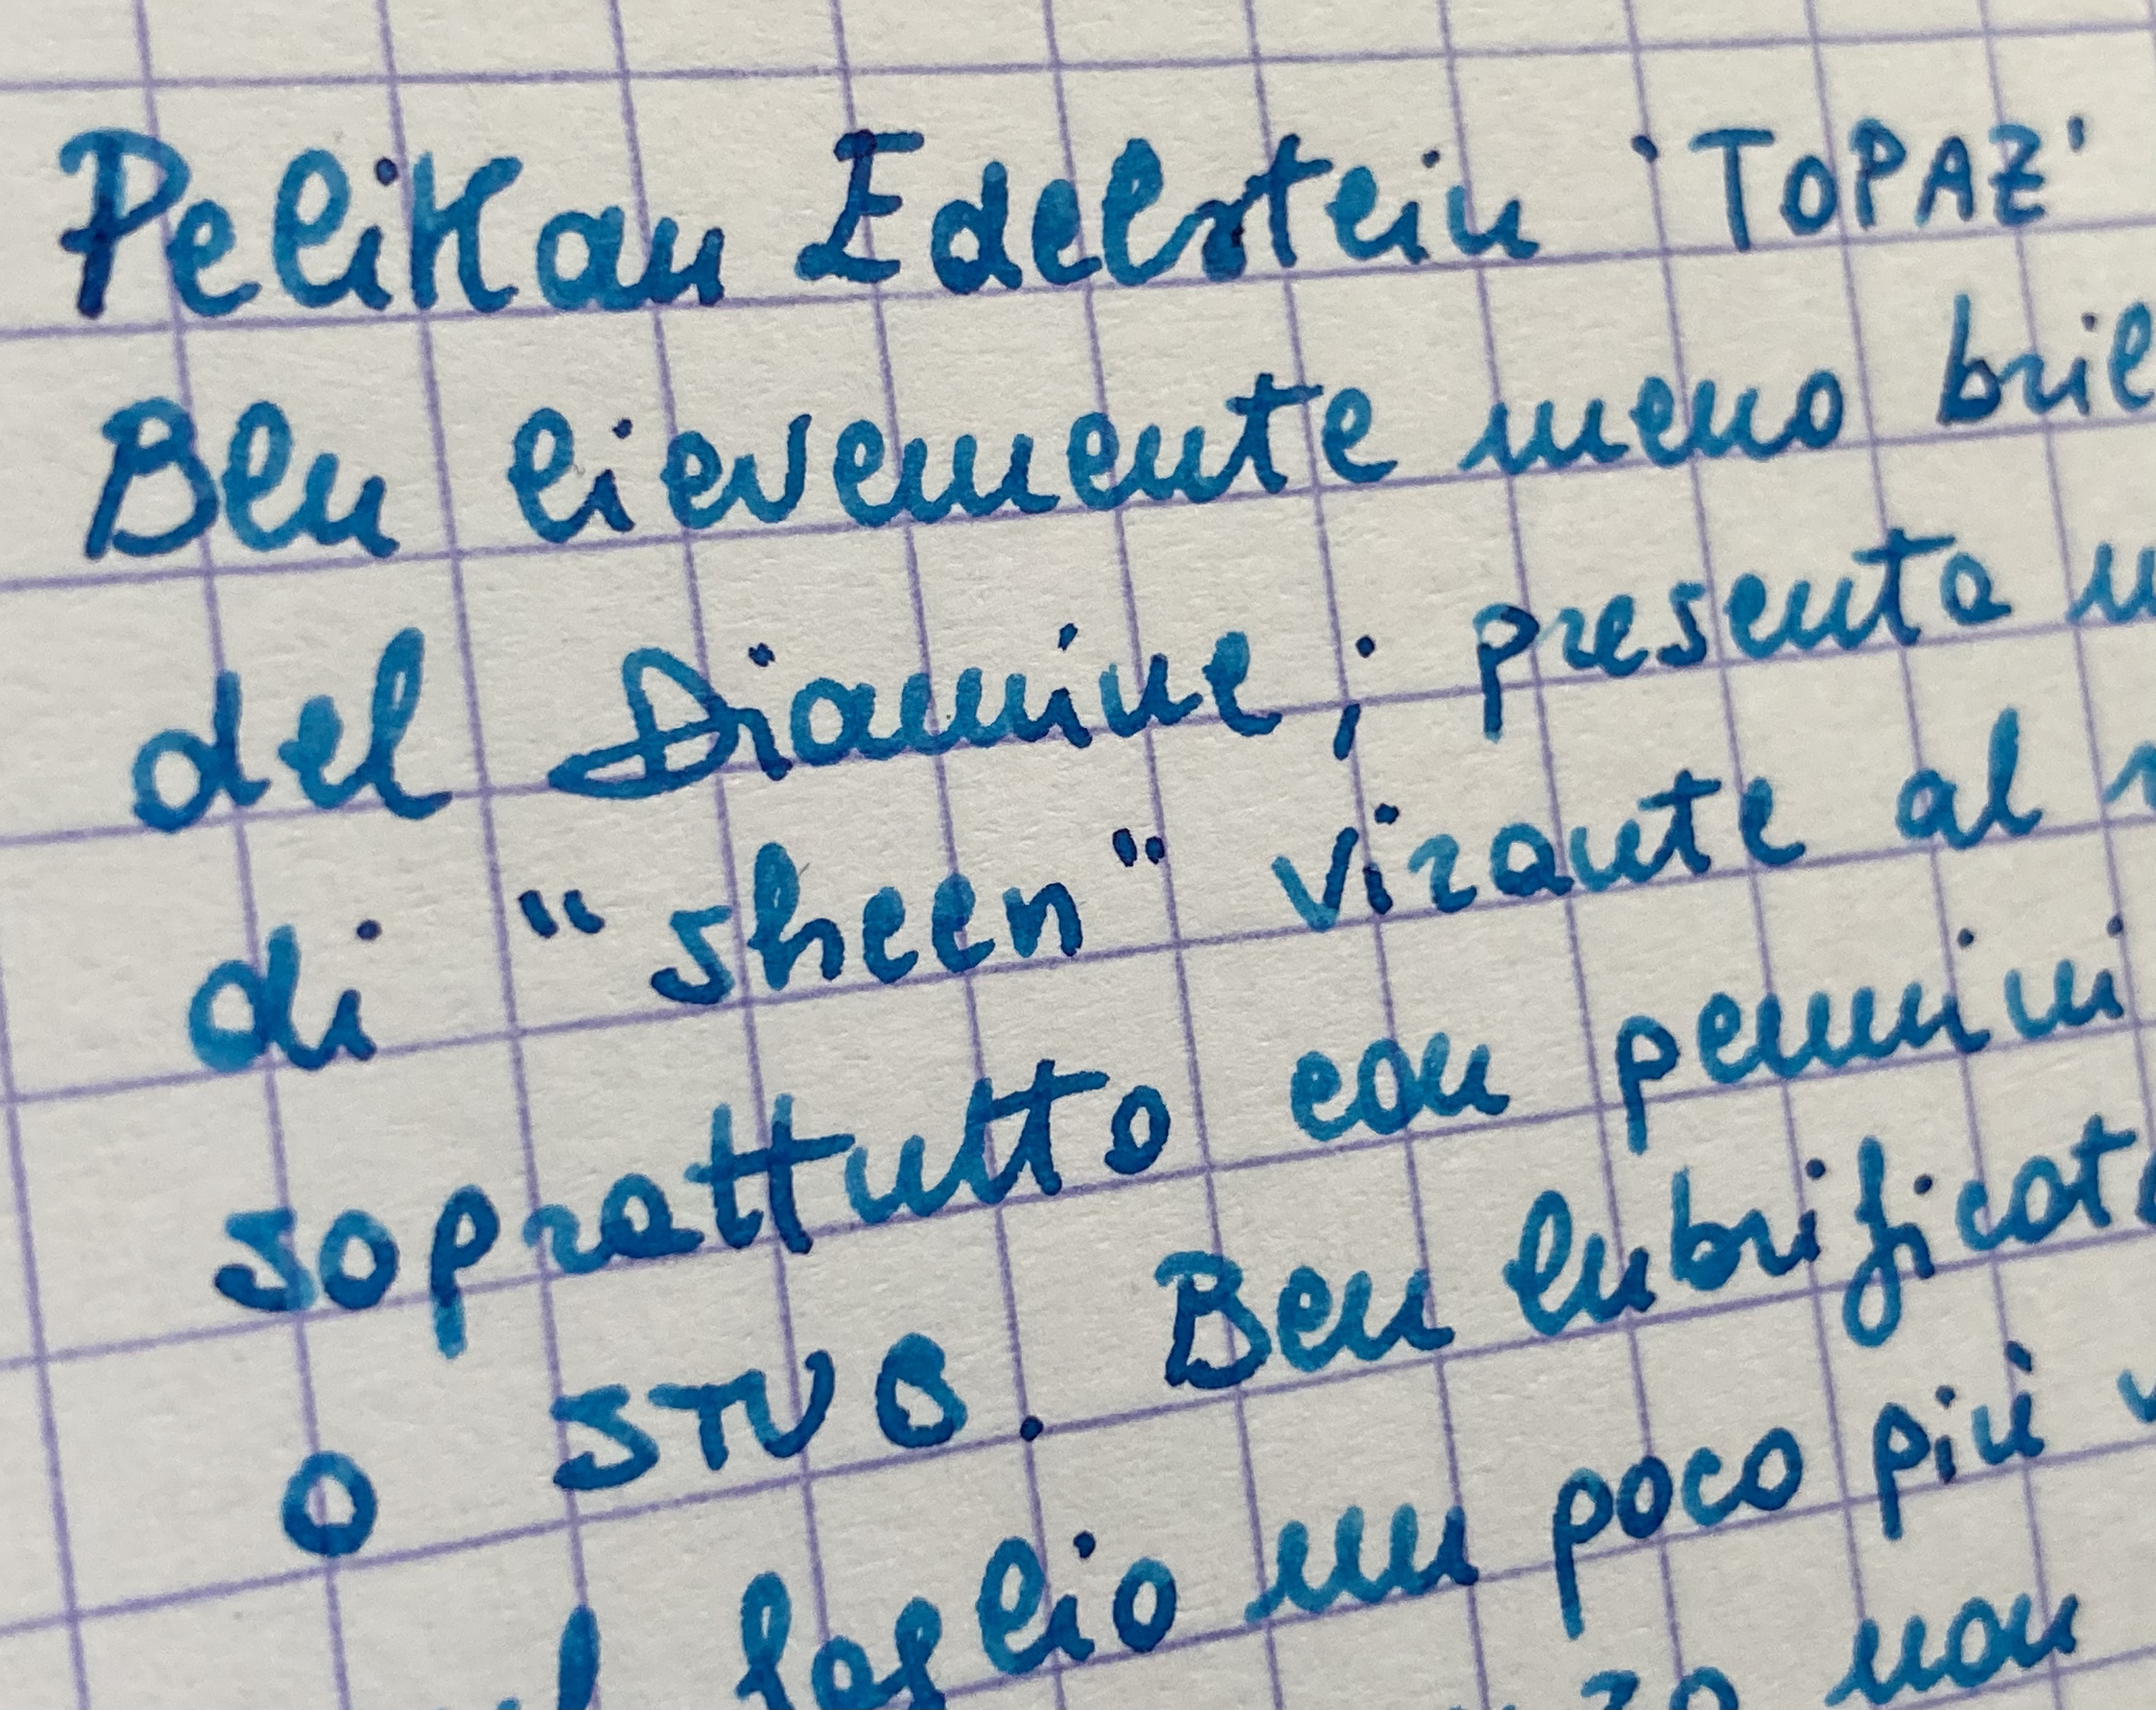 Pelikan Edelstein 'TOPAZ'
Blu lievemente meno bril
del Diamine; presenta
di "sheen" virante al
soprattutto con pennini
o STUB. Ben lubrificat
foglio un poco più
non